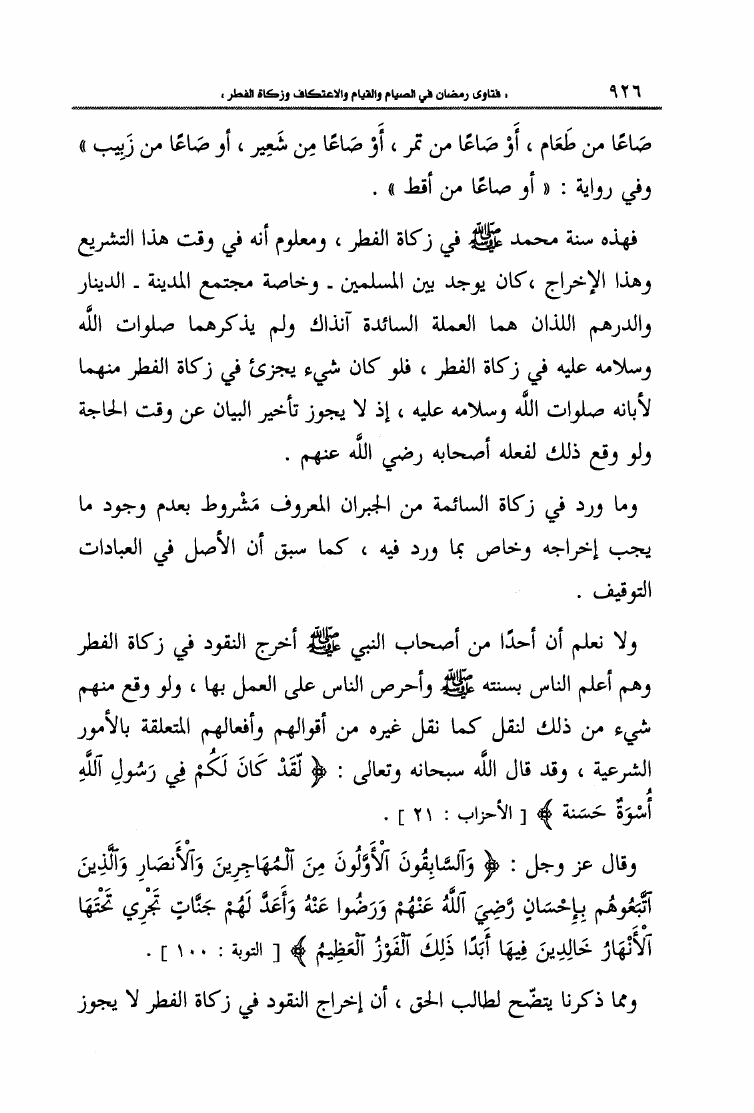 ٩٢٦ « فتاوى رمضان في الصيام والقيام والاعتكاف وزكاة الفطر »
صَاعًا من طَعَام ، أَوْ صَاعًا من تمر ، أَوْ صَاعًا مِن شَعِير ، أو صَاعًا من زَبِيب »
وفي رواية : « أو صاعًا من أقط » .
فهذه سنة محمد ﷺ في زكاة الفطر ، ومعلوم أنه في وقت هذا التشريع
وهذا الإخراج ، كان يوجد بين المسلمين ـ وخاصة مجتمع المدينة ـ الدينار
والدرهم اللذان هما العملة السائدة آنذاك ولم يذكرهما صلوات اللَّه
وسلامه عليه في زكاة الفطر ، فلو كان شيء يجزئ في زكاة الفطر منهما
لأبانه صلوات اللَّه وسلامه عليه ، إذ لا يجوز تأخير البيان عن وقت الحاجة
ولو وقع ذلك لفعله أصحابه رضي اللَّه عنهم .
وما ورد في زكاة السائمة من الجبران المعروف مَشْروط بعدم وجود ما
يجب إخراجه وخاص بما ورد فيه ، كما سبق أن الأصل في العبادات
التوقيف .
ولا نعلم أن أحدًا من أصحاب النبي ﷺ أخرج النقود في زكاة الفطر
وهم أعلم الناس بسنته ﷺ وأحرص الناس على العمل بها ، ولو وقع منهم
شيء من ذلك لنقل كما نقل غيره من أقوالهم وأفعالهم المتعلقة بالأمور
الشرعية ، وقد قال اللَّه سبحانه وتعالى : ﴿ لَّقَدْ كَانَ لَكُمْ فِي رَسُولِ ٱللَّهِ
أُسْوَةٌ حَسَنة ﴾ [ الأحزاب : ٢١ ] .
وقال عز وجل : ﴿ وَٱلسَّابِقُونَ ٱلْأَوَّلُونَ مِنَ ٱلْمُهَاجِرِينَ وَٱلْأَنصَارِ وَٱلَّذِينَ
ٱتَّبَعُوهُم بِإِحْسَانٍ رَّضِيَ ٱللَّهُ عَنْهُمْ وَرَضُوا عَنْهُ وَأَعَدَّ لَهُمْ جَنَّاتٍ تَجْرِي تَحْتَهَا
ٱلْأَنْهَارُ خَالِدِينَ فِيهَا أَبَدًا ذَلِكَ ٱلْفَوْزُ ٱلْعَظِيمُ ﴾ [ التوبة : ١٠٠ ] .
ومما ذكرنا يتضّح لطالب الحق ، أن إخراج النقود في زكاة الفطر لا يجوز